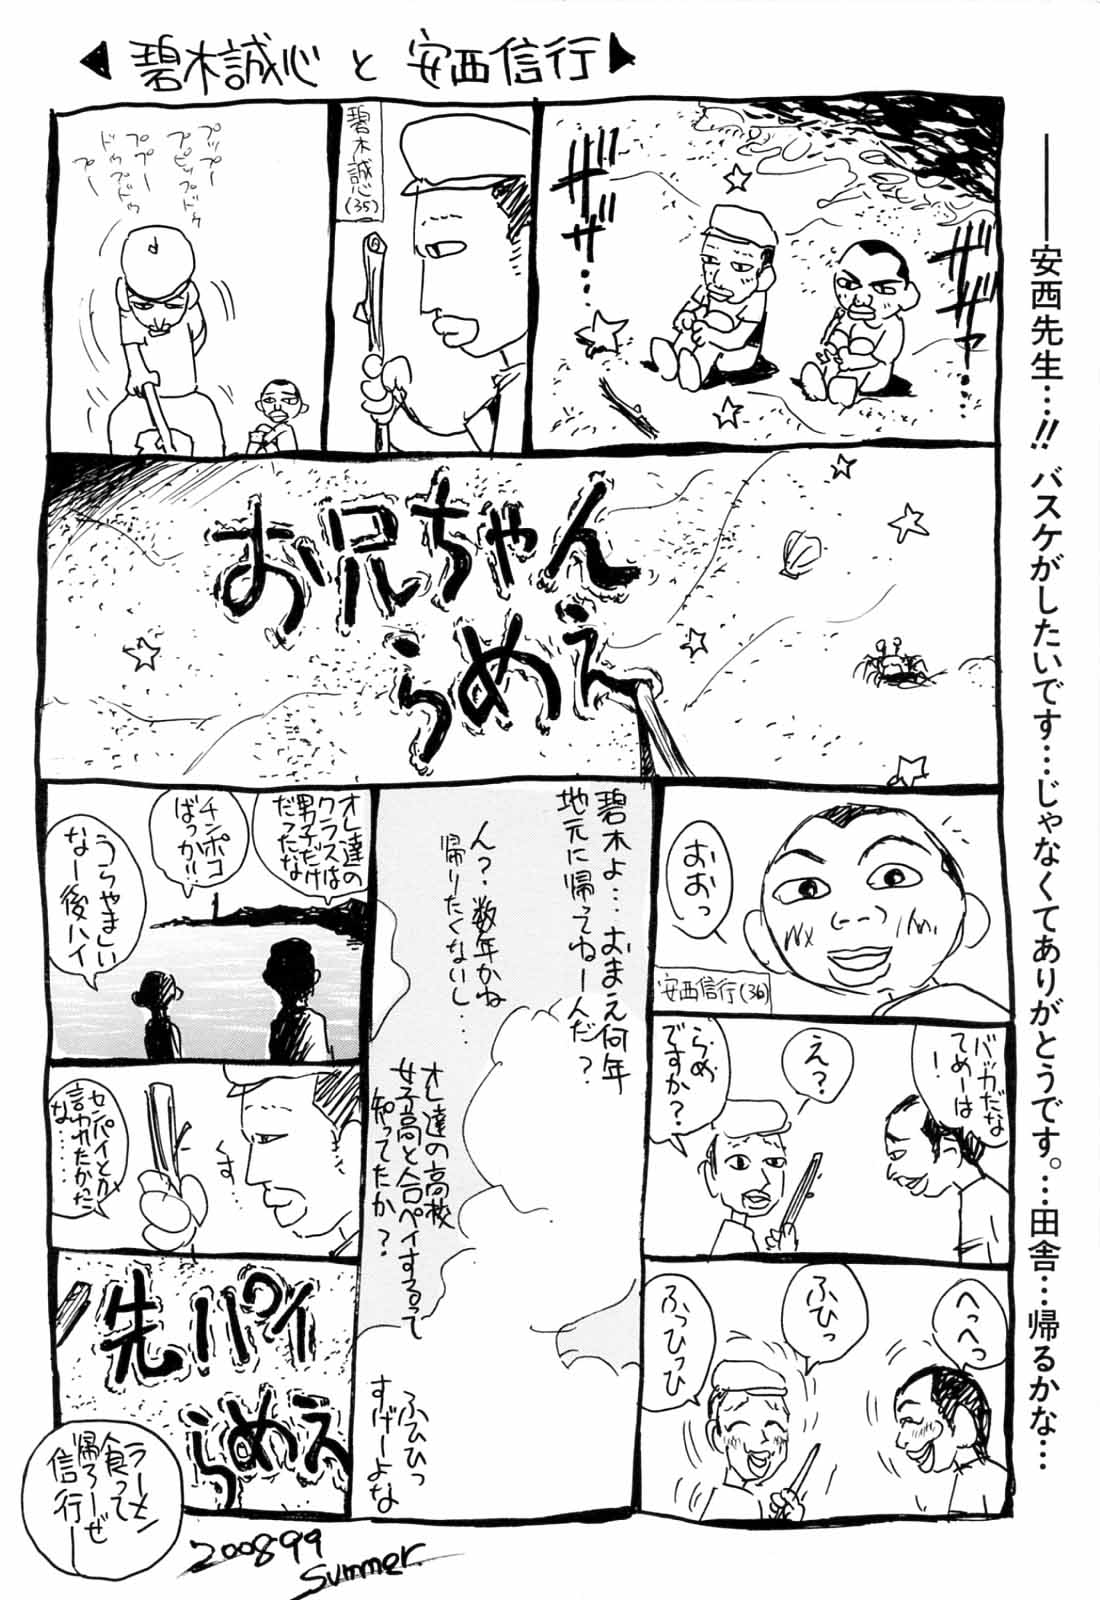 碧木誠心と安西信行
安西先生…!! バスケがしたいです…じゃなくてありがとうです。…田舎…帰るかな…
ザザザ…
ザザァ…
碧木誠心(35)
プップー
プピップドゥ
ププー
ドゥプドゥ
プー
お兄ちゃん
らめえ
おおっ
安西信行(36)
バッカだな
てめーは
!
え?
らめ
ですか?
へっへっ
ふひっ
ふっひっひ
碧木よ…おまえ何年
地元に帰ってねーんだ?
ん?数年かね
帰りたくないし…
オレ達の高校
女子高と合ペイするって
知ってたか?
ふひひっ
すげーよな
オレ達の
クラスは
男子だけ
だったな
チンポコ
ばっか!!
うらやましい
なー後ハイ
す
センパイとか
言われたかった
な……
先パイ
らめえ
ラーメン
食って
帰ろーぜ
信行ー
200899
summer.